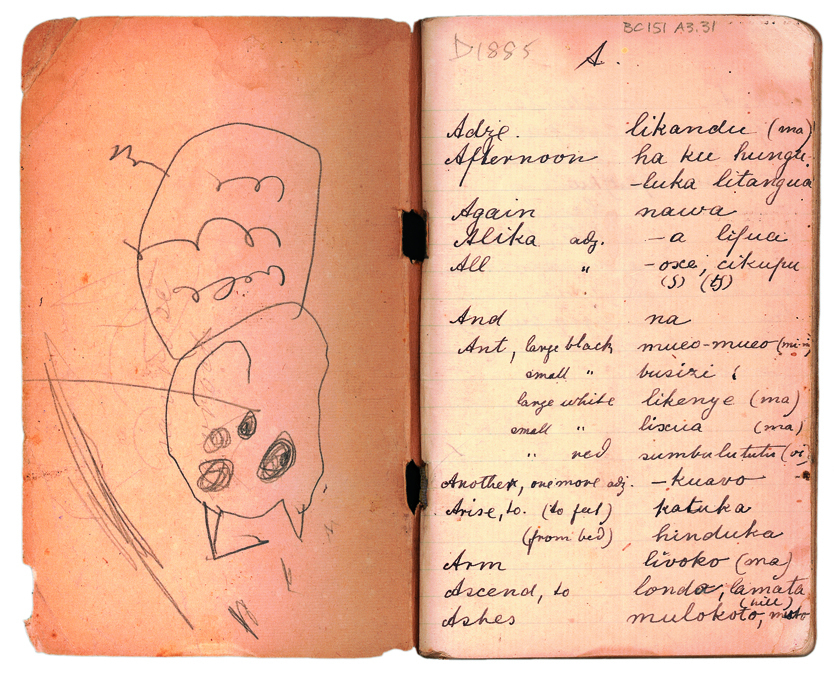 BC151 A3.31
D1885
A.
Adze. likandu (ma)
Afternoon ha ku hungu-
-luka litangua
Again nawa
Alika adj. -a lifua
All " -oxe, cikupu
(ʃ) (tʃ)
And na
Ant, large black mueo-mueo (mi-mi)
small " busizi
large white likenye (ma)
small " lixua (ma)
" red sumbulututu (va)
Another, one more adj. -kuavo
Arise, to. (to feet) katuka
(from bed) hinduka
Arm livoko (ma)
Ascend, to londa, lamata
(hill)
Ashes mulokoto,